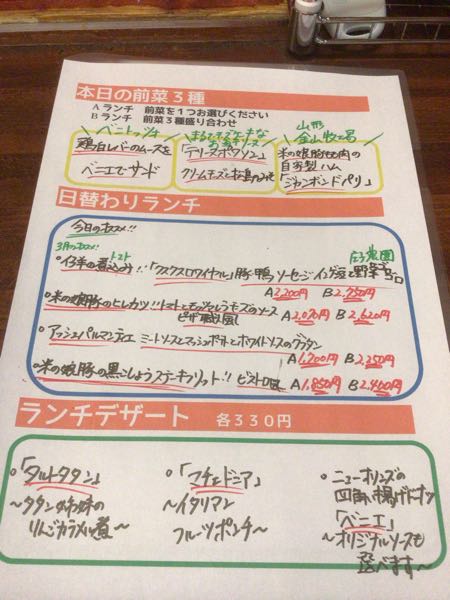 本日の前菜3種
Aランチ 前菜を1つお選びください
Bランチ 前菜3種盛り合わせ
ベニトッツォ
鶏白レバーのムースを
ベニエでサンド
まるでチーズケーキな
お魚テリーヌ
「テリーヌポワソン」
クリームチーズと
山形
金山牧場
米の娘豚もも肉の
自家製ハム
「ジャンボンドパリ」
日替わりランチ
今日のオススメ!!
3月のオススメ!
トマト
仔羊の煮込み!!「クスクスロワイヤル」豚 鴨 ソーセージ イングン豆
農園
野菜ゴロゴロ
A2,200円 B2,750円
米の娘豚のヒレカツ!!トマトとモッツァレラチーズのソース
ピザ職人風
A2,070円 B2,620円
アッシュパルマンティエ ミートソースとマッシュポテトとホワイトソースのグラタン
A1,700円 B2,250円
米の娘豚の黒こしょうステーキフリット!! ビストロ風
A1,850円 B2,400円
ランチデザート 各330円
「タルトタタン」
〜タタン姉妹の
りんごカラメル煮〜
「マチェドニア」
〜イタリアン
フルーツポンチ〜
ニューオリンズの
四角い揚げドーナッツ
「ベニエ」
〜オリジナルソースも
選べます〜